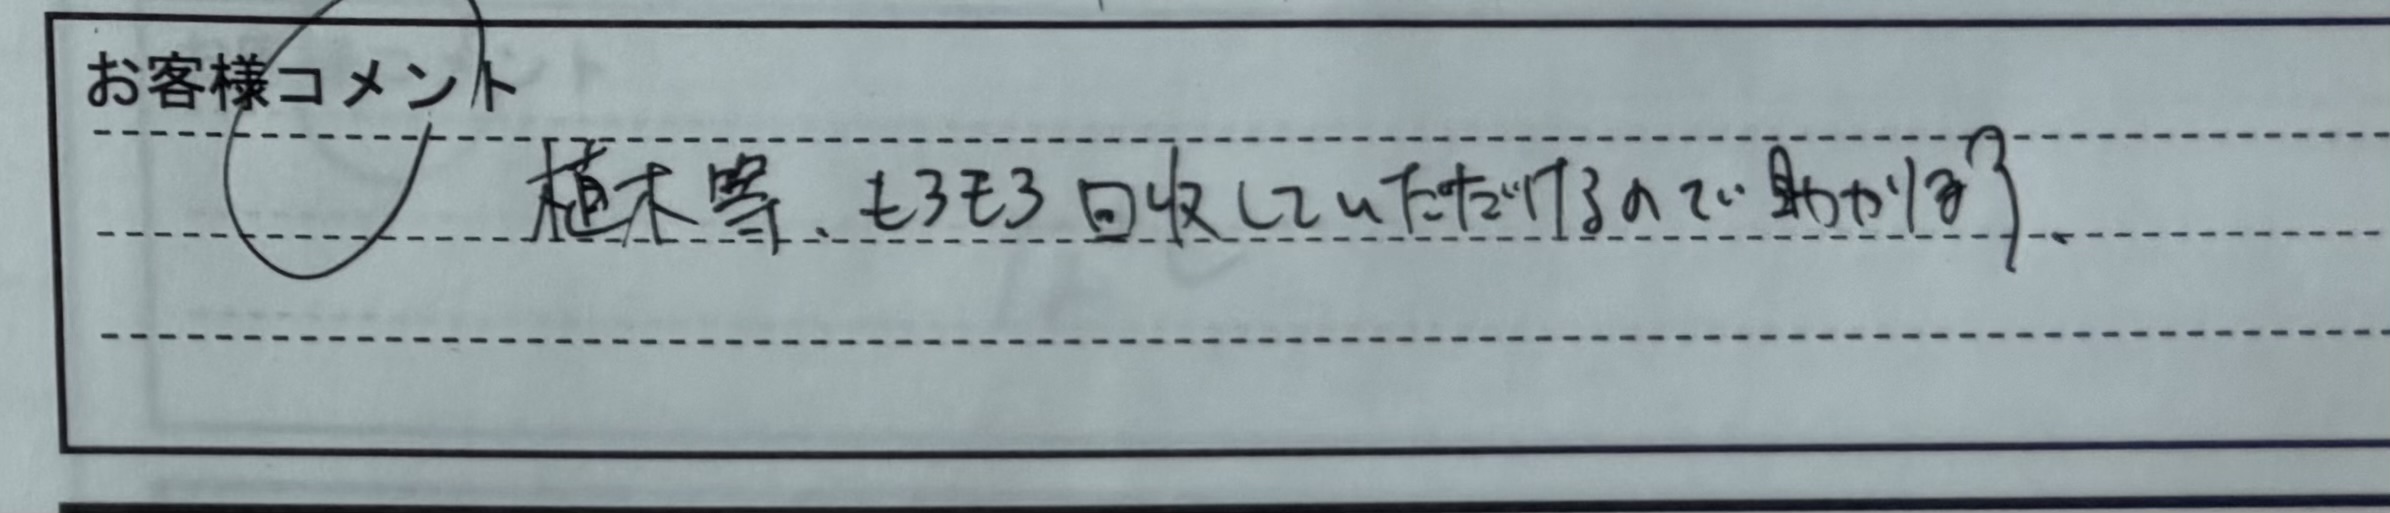 お客様コメント
植木等、もろもろ回収していただけるので助かります、